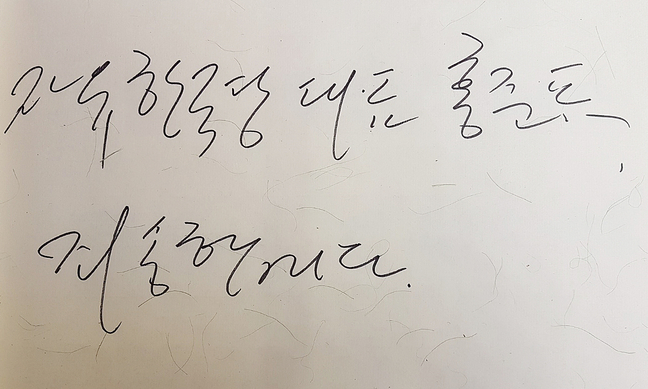 자유한국당 대표 홍준표,
죄송합니다.